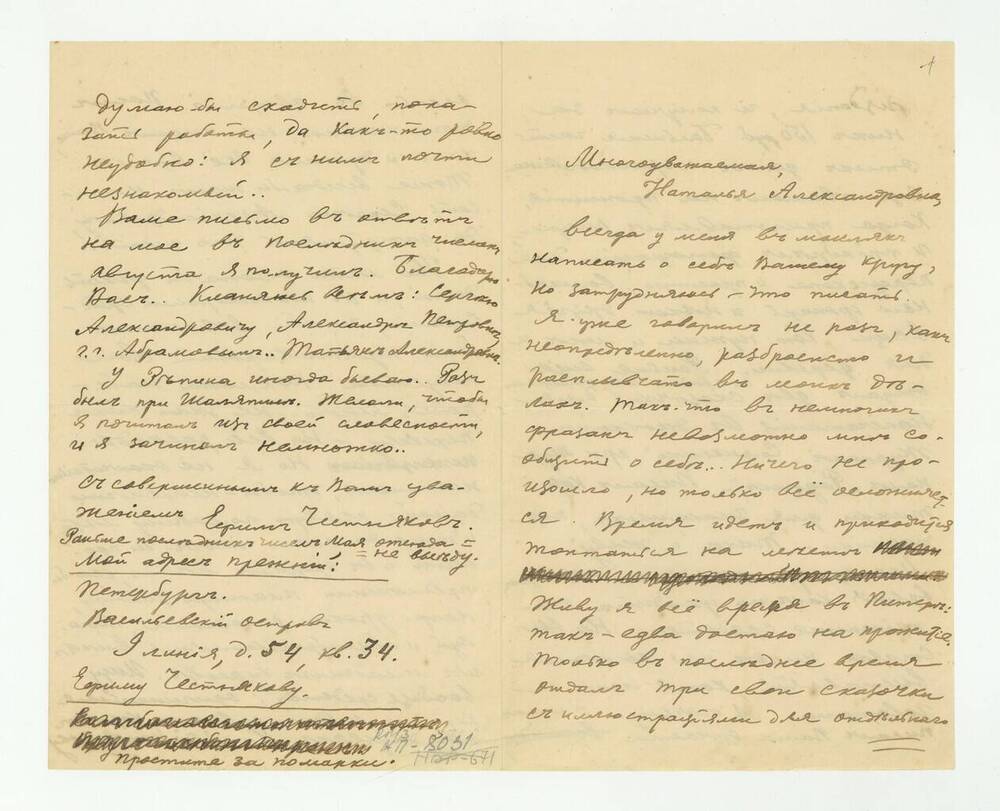 1
Многоуважаемая,
Наталья Александровна,
всегда у меня въ мысляхъ
написать о себѣ Вашему кругу,
но затрудняюсь – что писать.
Я уже говорилъ не разъ, какъ
неопредѣленно, разбросисто и
расплывчато въ моихъ дѣ-
лахъ. Такъ-что въ немногихъ
фразахъ невозможно мнѣ со-
общить о себѣ... Ничего не про-
изошло, но только всё осложняет-
ся. Время идетъ и приходится
топтаться на
Живу я всё время въ Питерѣ:
такъ – едва достаю на прожитье.
Только въ послѣднее время
отдалъ три свои сказочки
съ иллюстраціями для отдѣльнаго
думаю-бы сходить, пока-
зать работы, да какъ-то ровно
неудобно: я съ нимъ почти
незнакомый..
Ваше письмо въ отвѣтъ
на мое въ послѣднихъ числахъ
августа я получилъ. Благодарю
Васъ.. Кланяюсь всѣмъ: Сергѣю
Александровичу, Александрѣ Петровнѣ,
г.г. Абрамовымъ.. Татьянѣ Александровнѣ.
У Рѣпина иногда бываю.. Разъ
былъ при Шаляпинѣ. Желали, чтобы
я почиталъ изъ своей словесности,
и я зачиналъ немножко..
Съ совершеннымъ къ Вамъ ува-
женіемъ Ефимъ Честняковъ.
Раньше послѣднихъ чиселъ Мая отсюда =
= не выѣду.
Мой адресъ прежній:
Петербургъ.
Васильевскій островъ
I линія, д. 54, кв. 34.
Ефиму Честнякову.
КП-8031
Простите за помарки.